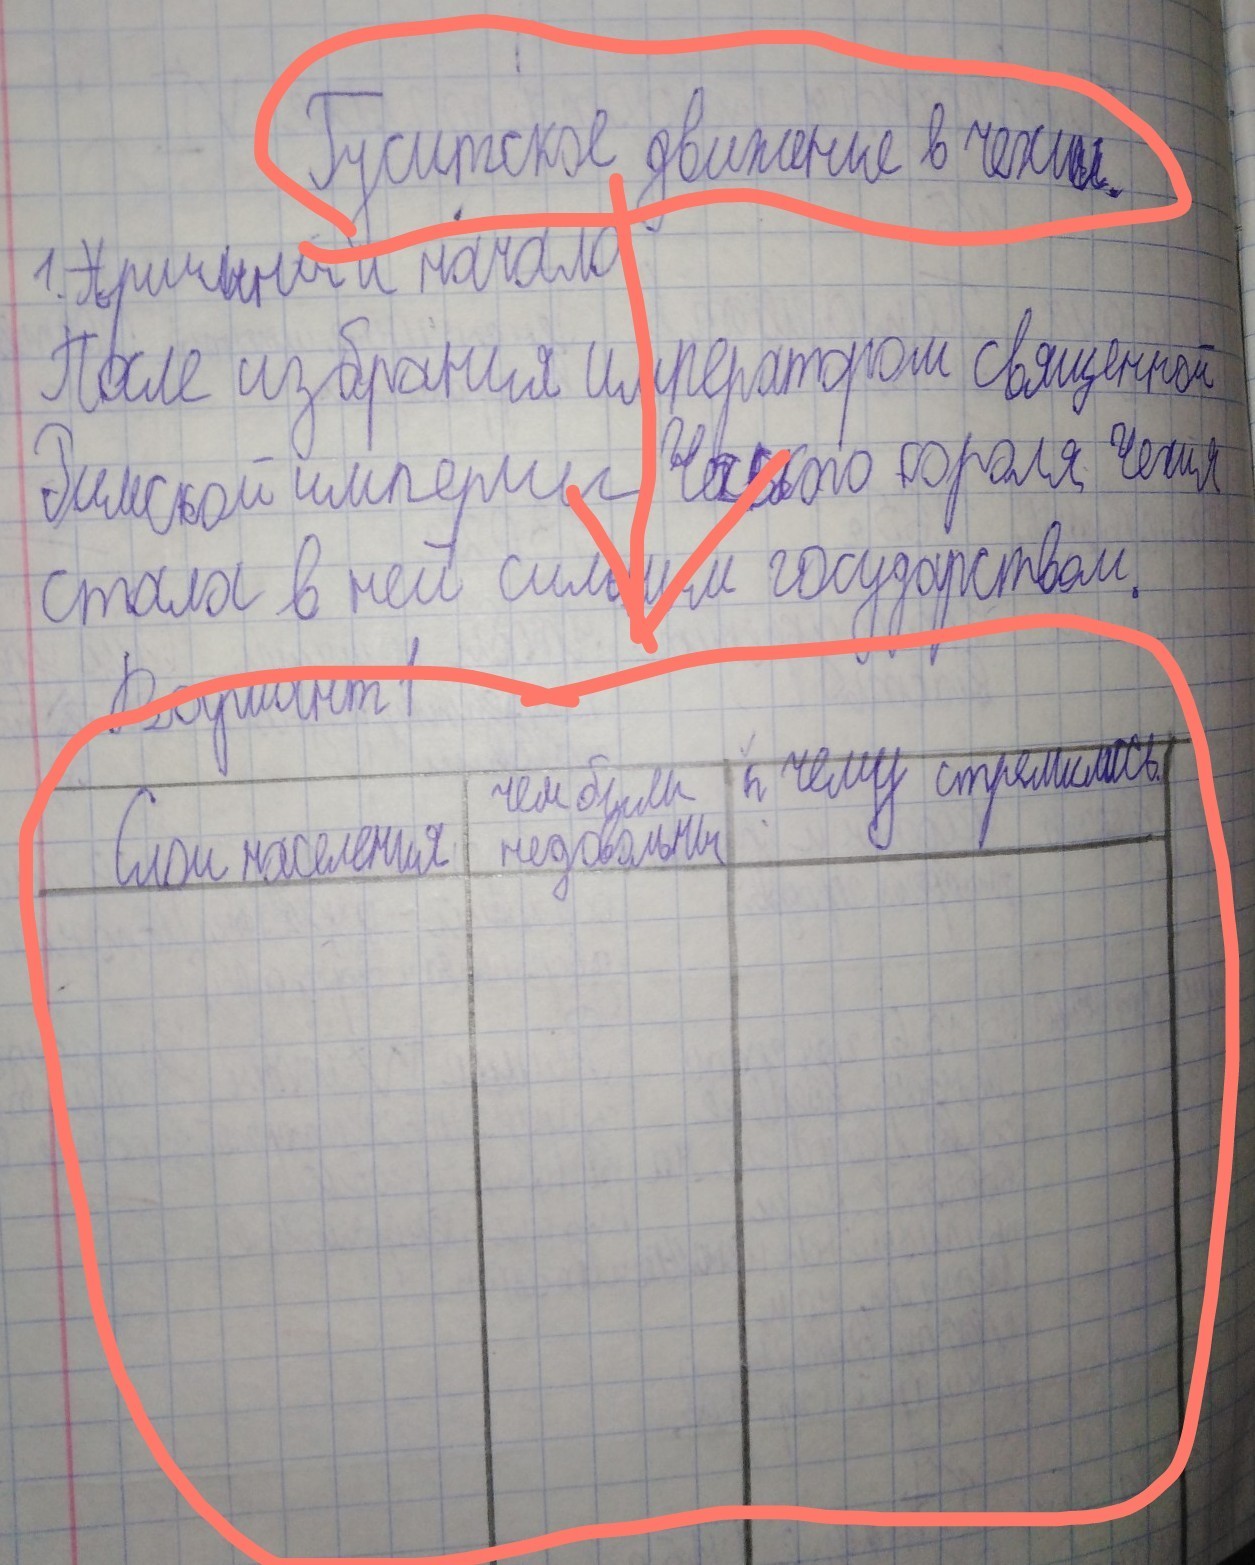 Гуситское движение в чехии.
1. Причины и начало
После избрания императором священной
Римской империи Чешского короля Чехия
стала в ней сильным государством.
Вариант 1
Слои населения
чем были
недовольны
к чему стремились.